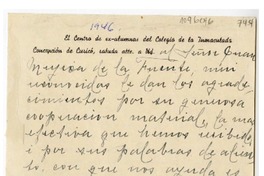 1946
744
El Centro de ex-alumnas del Colegio de la Inmaculada
Concepción de Curicó, saluda atte. a Ud. al Señor Juan
Mujica de la Fuente, mui
reconocidas le dan los agrade
cimientos por su generosa
cooperacion material, la mas
efectiva que hemos recibido
i por sus palabras de alien
to, con que nos ayuda es